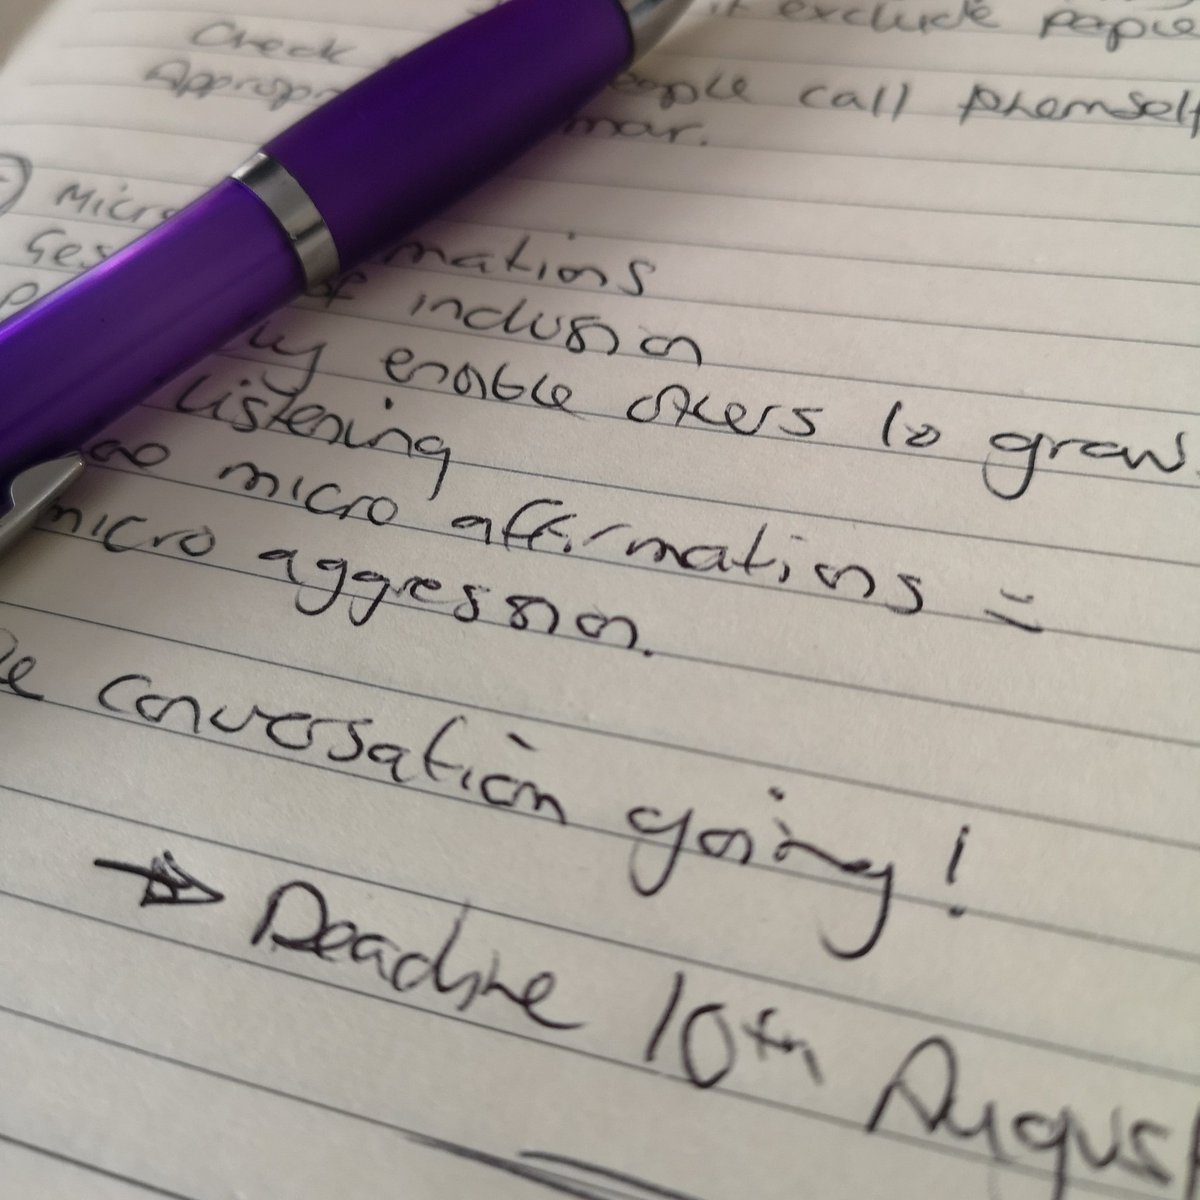 exclude people
Check
Approp people call phemself
mar.
Micro
Ges mations
of inclusion
ly enable others to grow.
Listening
micro affirmations =
micro aggression.
conversation going!
→ Deadline 10th August